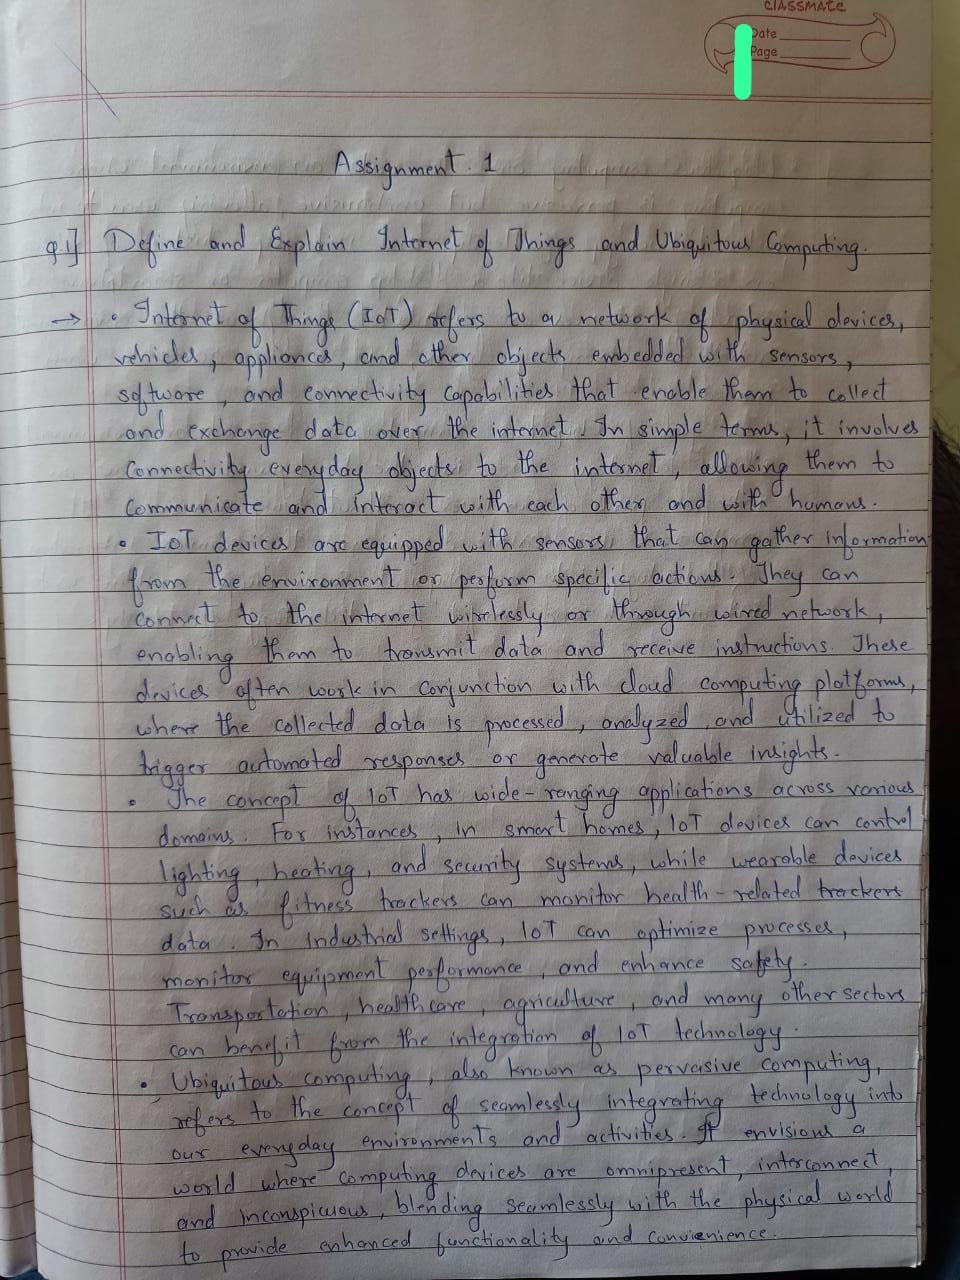 CLASSMATE
Date
Page
Assignment. 1
Q.1] Define and Explain Internet of Things and Ubiquitous Computing.
→ • Internet of Things (IoT) refers to a network of physical devices,
vehicles, appliances, and other objects embedded with sensors,
software, and connectivity capabilities that enable them to collect
and exchange data over the internet. In simple terms, it involves
connectivity everyday objects to the internet, allowing them to
communicate and interact with each other and with humans.
• IoT devices are equipped with sensors that can gather information
from the environment or perform specific actions. They can
connect to the internet wirelessly or through wired network,
enabling them to transmit data and receive instructions. These
devices often work in conjunction with cloud computing platforms,
where the collected data is processed, analyzed, and utilized to
trigger automated responses or generate valuable insights.
• The concept of IoT has wide-ranging applications across various
domains. For instances, in smart homes, IoT devices can control
lighting, heating, and security systems, while wearable devices
such as fitness trackers can monitor health-related trackers
data. In Industrial settings, IoT can optimize processes,
monitor equipment performance, and enhance safety.
Transportation, healthcare, agriculture, and many other sectors
can benefit from the integration of IoT technology.
• Ubiquitous computing, also known as pervasive computing,
refers to the concept of seamlessly integrating technology into
our everyday environments and activities. It envisions a
world where computing devices are omnipresent, interconnect,
and inconspicuous, blending seamlessly with the physical world
to provide enhanced functionality and convienience.